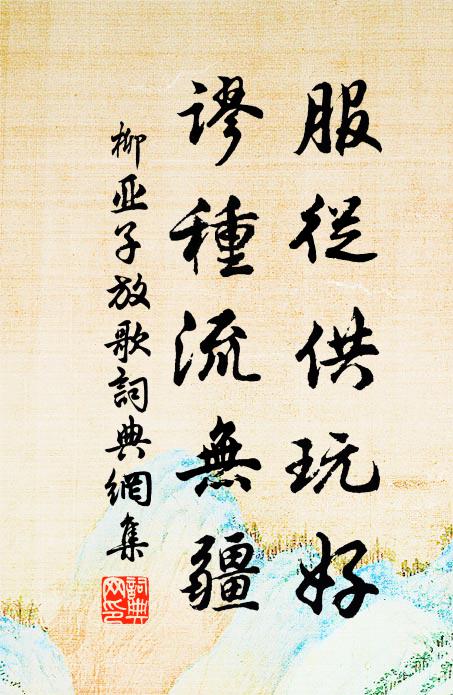 服從供玩好
謬種流無疆
柳亚子放歌詞典網集
詞典